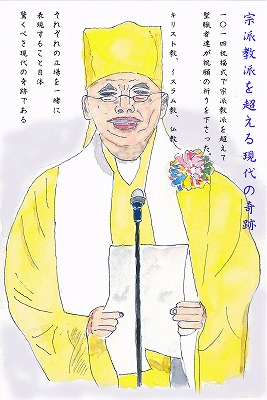 宗派教派を超える現代の奇跡
二〇一四祝福式で宗派教派を超えて
聖職者達が祝願の祈りを下さった、
キリスト教、イスラム教、仏教、
それぞれの立場を一緒に
表現すること自体
驚くべき現代の奇跡である